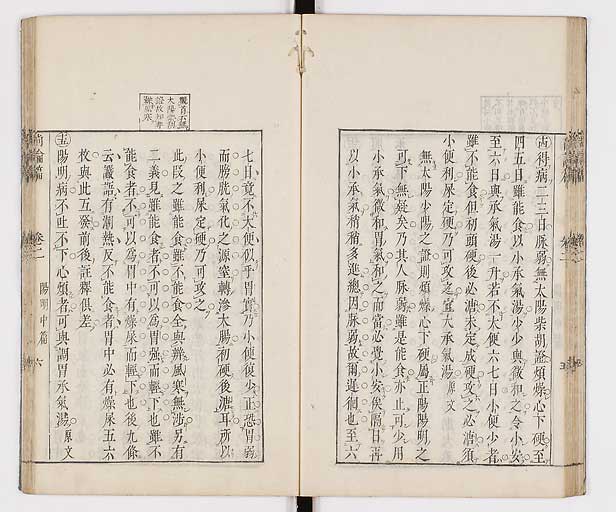 得病二三日脉弱無太陽柴胡證煩燥心下硬至
四五日雖能食以小承氣湯少少與微和之令小安
至六日與承氣湯一升若不大便六七日小便少者
雖不能食但初頭硬後必溏未定成硬攻之必溏須
小便利屎定硬乃可攻之宜大承氣湯原文
無太陽少陽之證則煩燥心下硬屬正陽陽明之
可下無疑矣乃其人脉弱雖是能食亦止可少用
小承氣微和胃氣和之而當必覺小安俟隔日再
以小承氣稍稍多進總因脉弱故爾遲徊也至六
七日竟不大便似乎胃實乃小便復少正恐胃弱
而膀胱氣化之源窒轉滲大腸初硬後溏耳所以
小便利屎定硬乃可攻之
此段之雖能食雖不能食全與辨風寒無涉另有
二義見雖能食者不可以為胃强而輕下也雖不
能食者不可以為胃中有燥屎而輕下也後九條
云讝語有潮熱反不能食者胃中必有燥屎五六
枚與此互發前後註釋俱差
陽明病不吐不下心煩者可與調胃承氣湯原文
尚論篇 卷二 陽明中篇 六